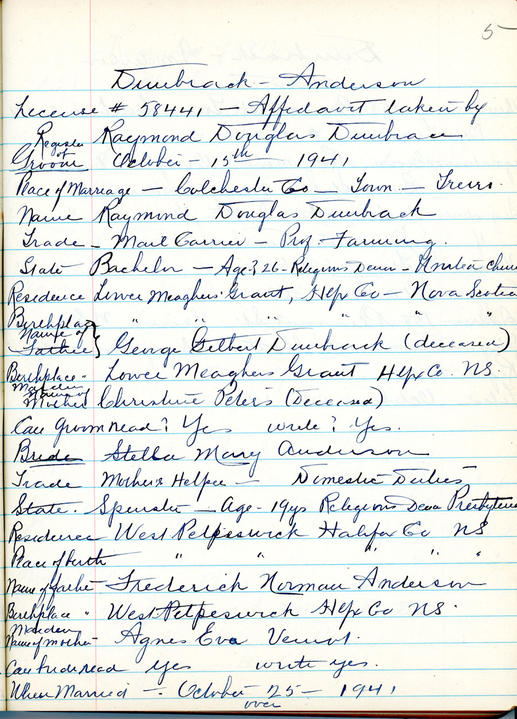 5
Dunbrack - Anderson
License # 58441 - Affidavit taken by
Register of Raymond Douglas Dunbrack
Groom October - 15th 1941
Place of Marriage - Colchester Co - Town - Truro.
Name Raymond Douglas Dunbrack
Trade - Mail Carrier - Prof. Farming.
State Bachelor - Age 26 - Religious Denom - United Church
Residence Lower Meaghers Grant, Hfx Co - Nova Scotia
Birthplace " " " " " "
Name of Father } George Gilbert Dunbrack (deceased)
Birthplace - Lower Meaghers Grant Hfx Co. NS.
Maiden Name of Mother Christine Peters (Deceased)
Can groom read? Yes write? Yes.
Bride Stella Mary Anderson
Trade Mother's Helper - Domestic Duties
State. Spinster - Age - 19 yrs Religious Denom Presbyterian
Residence West Petpeswick Halifax Co NS
Place of birth " " " " "
Name of father Frederick Norman Anderson
Birthplace " West Petpeswick Hfx Co NS.
Maiden Name of mother - Agnes Eva
Can bride read yes write yes.
When Married - October 25 - 1941
over